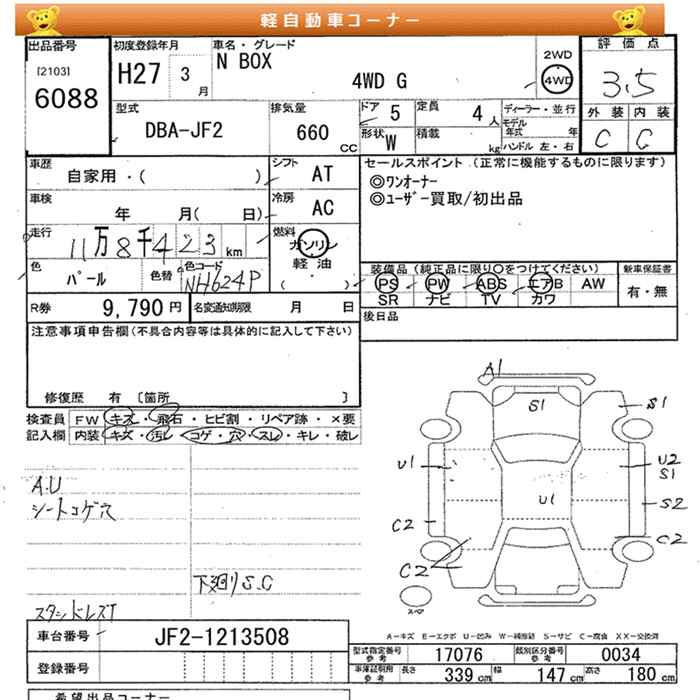 軽自動車コーナー
出品番号
[2103]
6088
初度登録年月
H27 3月
車名・グレード
N BOX
4WD G
2WD
4WD
評価点
3.5
外装 内装
C C
型式
DBA-JF2
排気量
660 CC
ドア 5
定員 4人
形状 W
積載 kg
ディーラー・並行
モデル年式 年
ハンドル 左・右
車歴
自家用・( )
シフト
AT
車検
年 月( 日)
冷房
AC
走行
11万8千423km
燃料
ガソリン
軽油
( )
色
パール
色替
色コード
NH624P
R券 9,790円
名変通知期限 月 日
セールスポイント (正常に機能するものに限ります)
◎ワンオーナー
◎ユーザー買取/初出品
装備品(純正品に限り〇をつけてください)
PS PW ABS エアB AW
SR ナビ TV カワ
新車保証書
有・無
後日品
注意事項申告欄(不具合内容等は具体的に記入して下さい)
修復歴 有 [箇所 ]
検査員記入欄
FW キズ・飛石・ヒビ割・リペア跡・×要
内装 キズ・汚レ・コゲ・穴・スレ・キレ・破レ
A.U
シートコゲ穴
下廻りS.C
スタンドレスT
A1
S1
S1
U1
U2
S1
U1
S2
C2
C2
C2
スペア
A－キズ E－エクボ U－凹み W－補修跡 S－サビ C－腐食 XX－交換済
車台番号
JF2-1213508
登録番号
型式指定番号 参考
17076
類別区分番号 参考
0034
車庫証明用 参考
長さ 339 cm
幅 147 cm
高さ 180 cm
希望出品コーナー